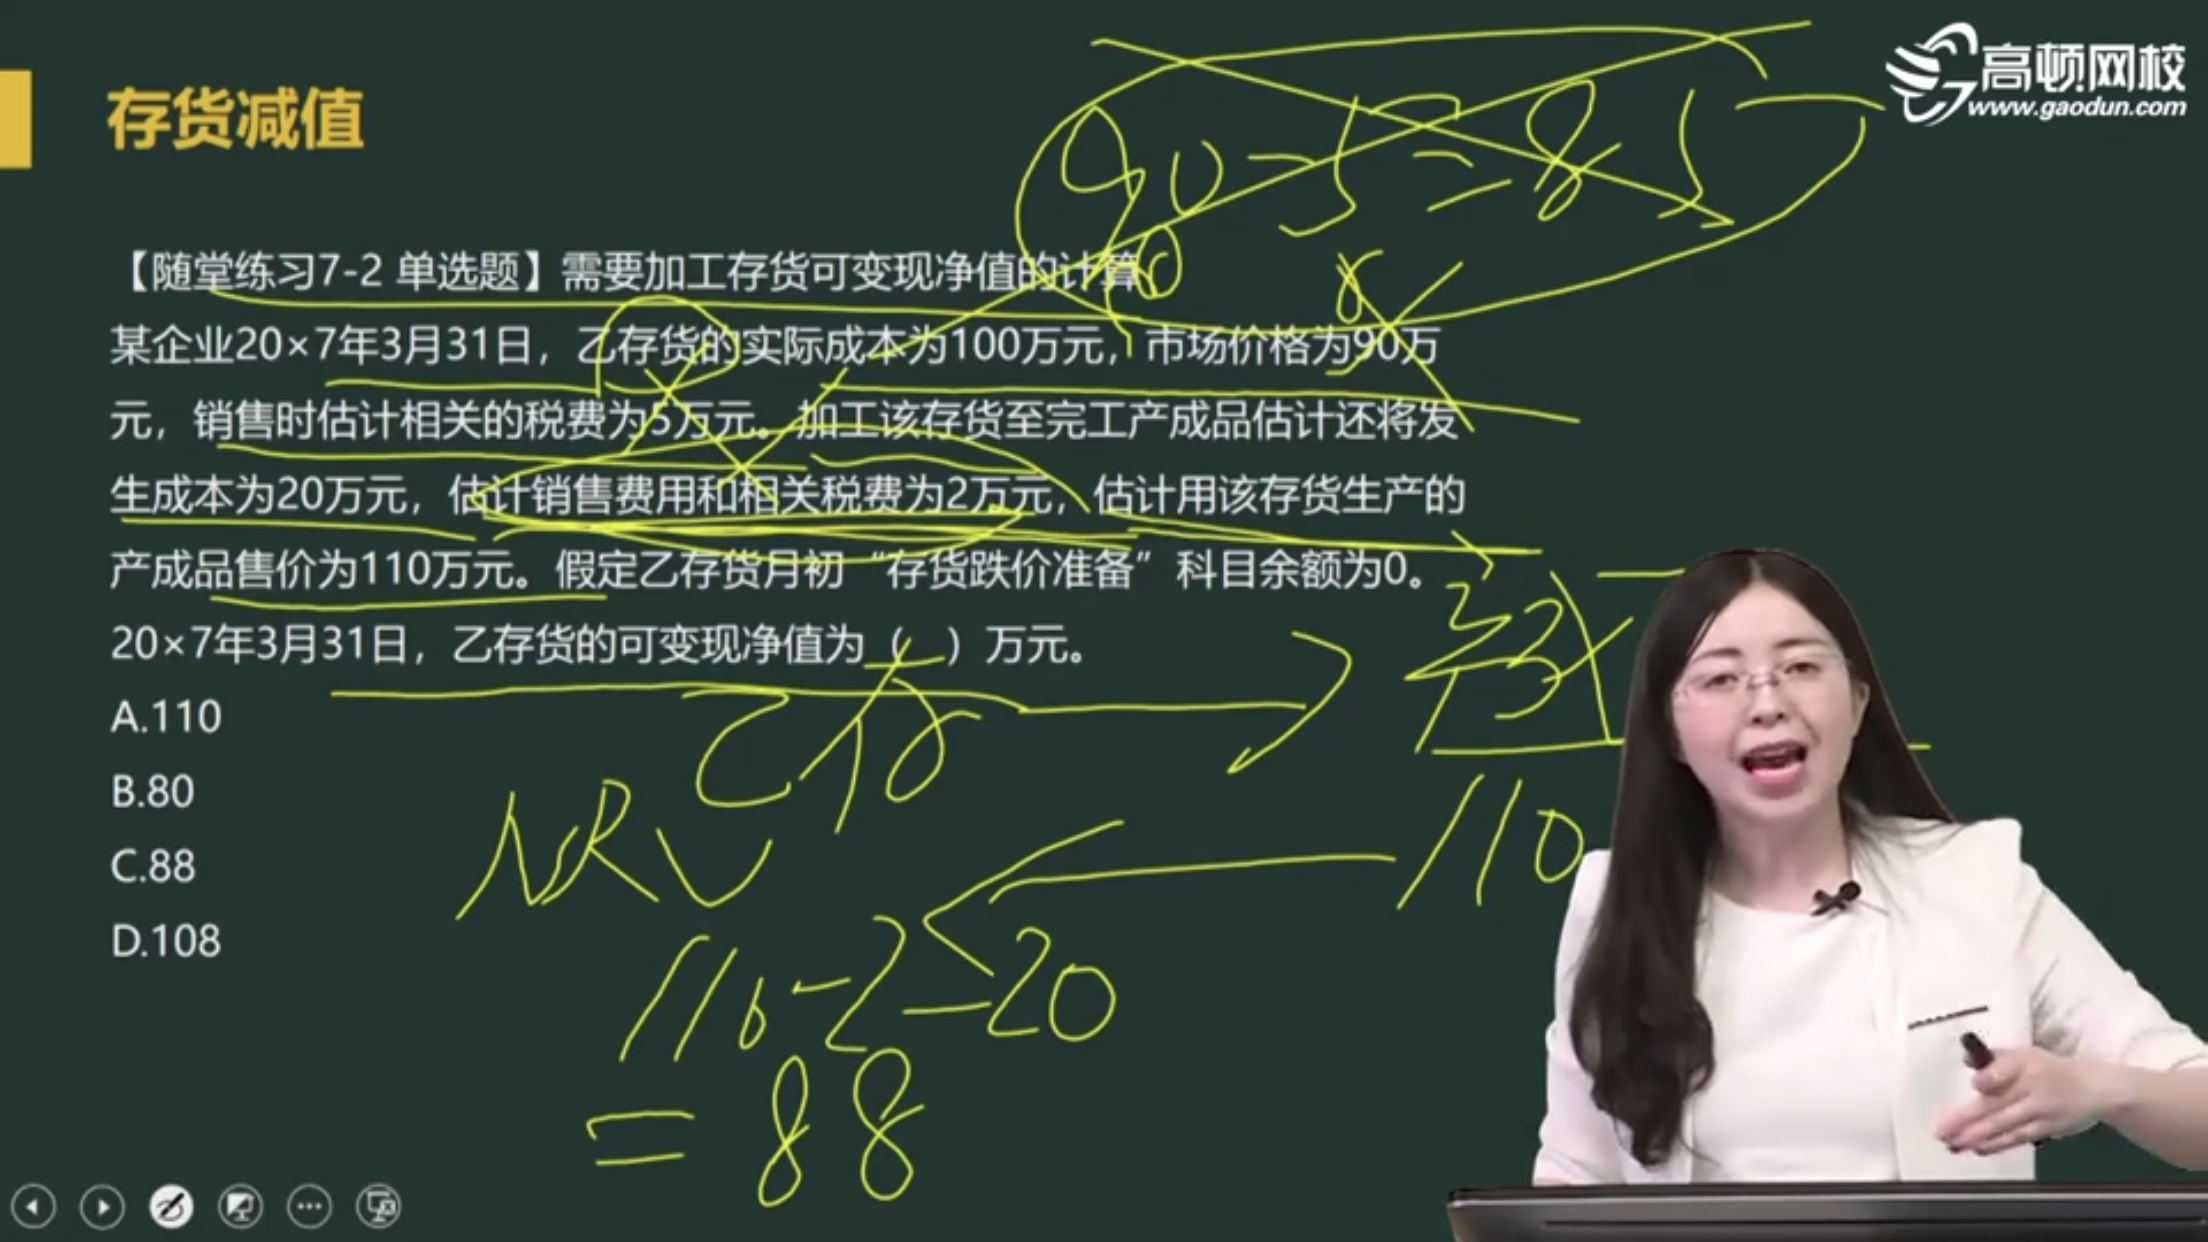 高顿网校
www.gaodun.com
存货减值
90-5=85
【随堂练习7-2 单选题】需要加工存货可变现净值的计算
某企业20×7年3月31日，乙存货的实际成本为100万元，市场价格为90万
元，销售时估计相关的税费为5万元。加工该存货至完工产成品估计还将发
生成本为20万元，估计销售费用和相关税费为2万元，估计用该存货生产的
产成品售价为110万元。假定乙存货月初“存货跌价准备”科目余额为0。
20×7年3月31日，乙存货的可变现净值为（ ）万元。
A.110
B.80
C.88
D.108
NRV
110
110-2-20
=88